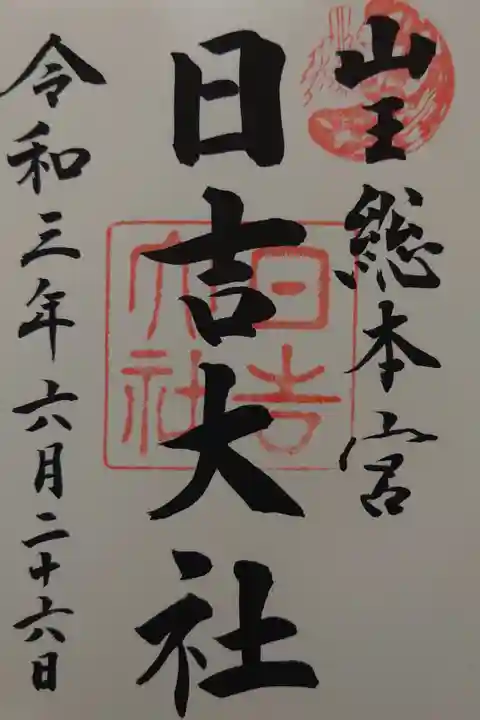 山王総本宮
日吉大社
令和三年六月二十六日
日吉
大社